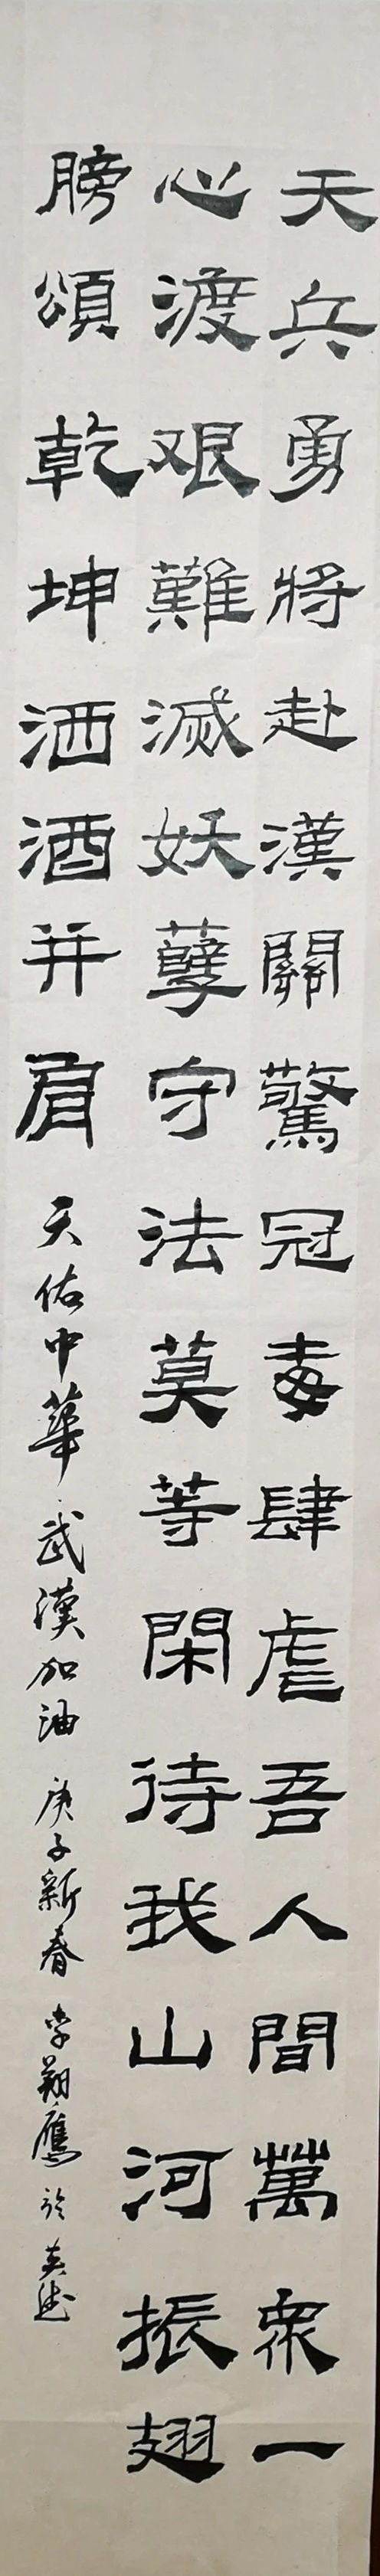 天兵勇將赴漢關驚冠毒肆虐吾人間萬衆一
心渡艱難滅妖孽守法莫等閑待我山河振翅
膀頌乾坤洒酒并肩
天佑中華武漢加油庚子新春李翔鷹於英德